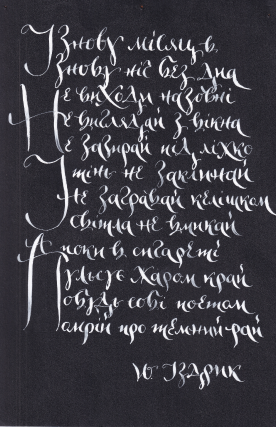 І знову місяць в,
знову ніч без дна
Не виходи назовні
Не виглядай з вікна
Не зазирай під ліжко
У тінь не закликай
Не загравай келішком
Світла не вмикай
А поки в сигареті
Пульсує жаром край
Побудь собі поетом
Помрій про темний рай
Ю. Іздрик